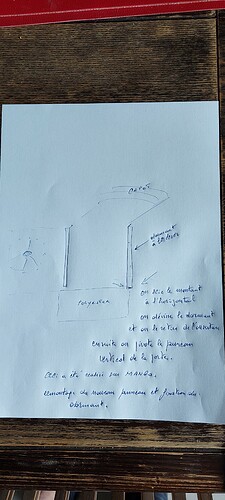 capot
dormant
à enlever
on scie le montant
à l'horizontal
on dévisse le dormant
et on le retire de l'ouverture
ensuite on pivote le panneau
vertical de la porte.
Ceci a été réalisé sur MANDA.
remontage du nouveau panneau et fixation du
dormant.